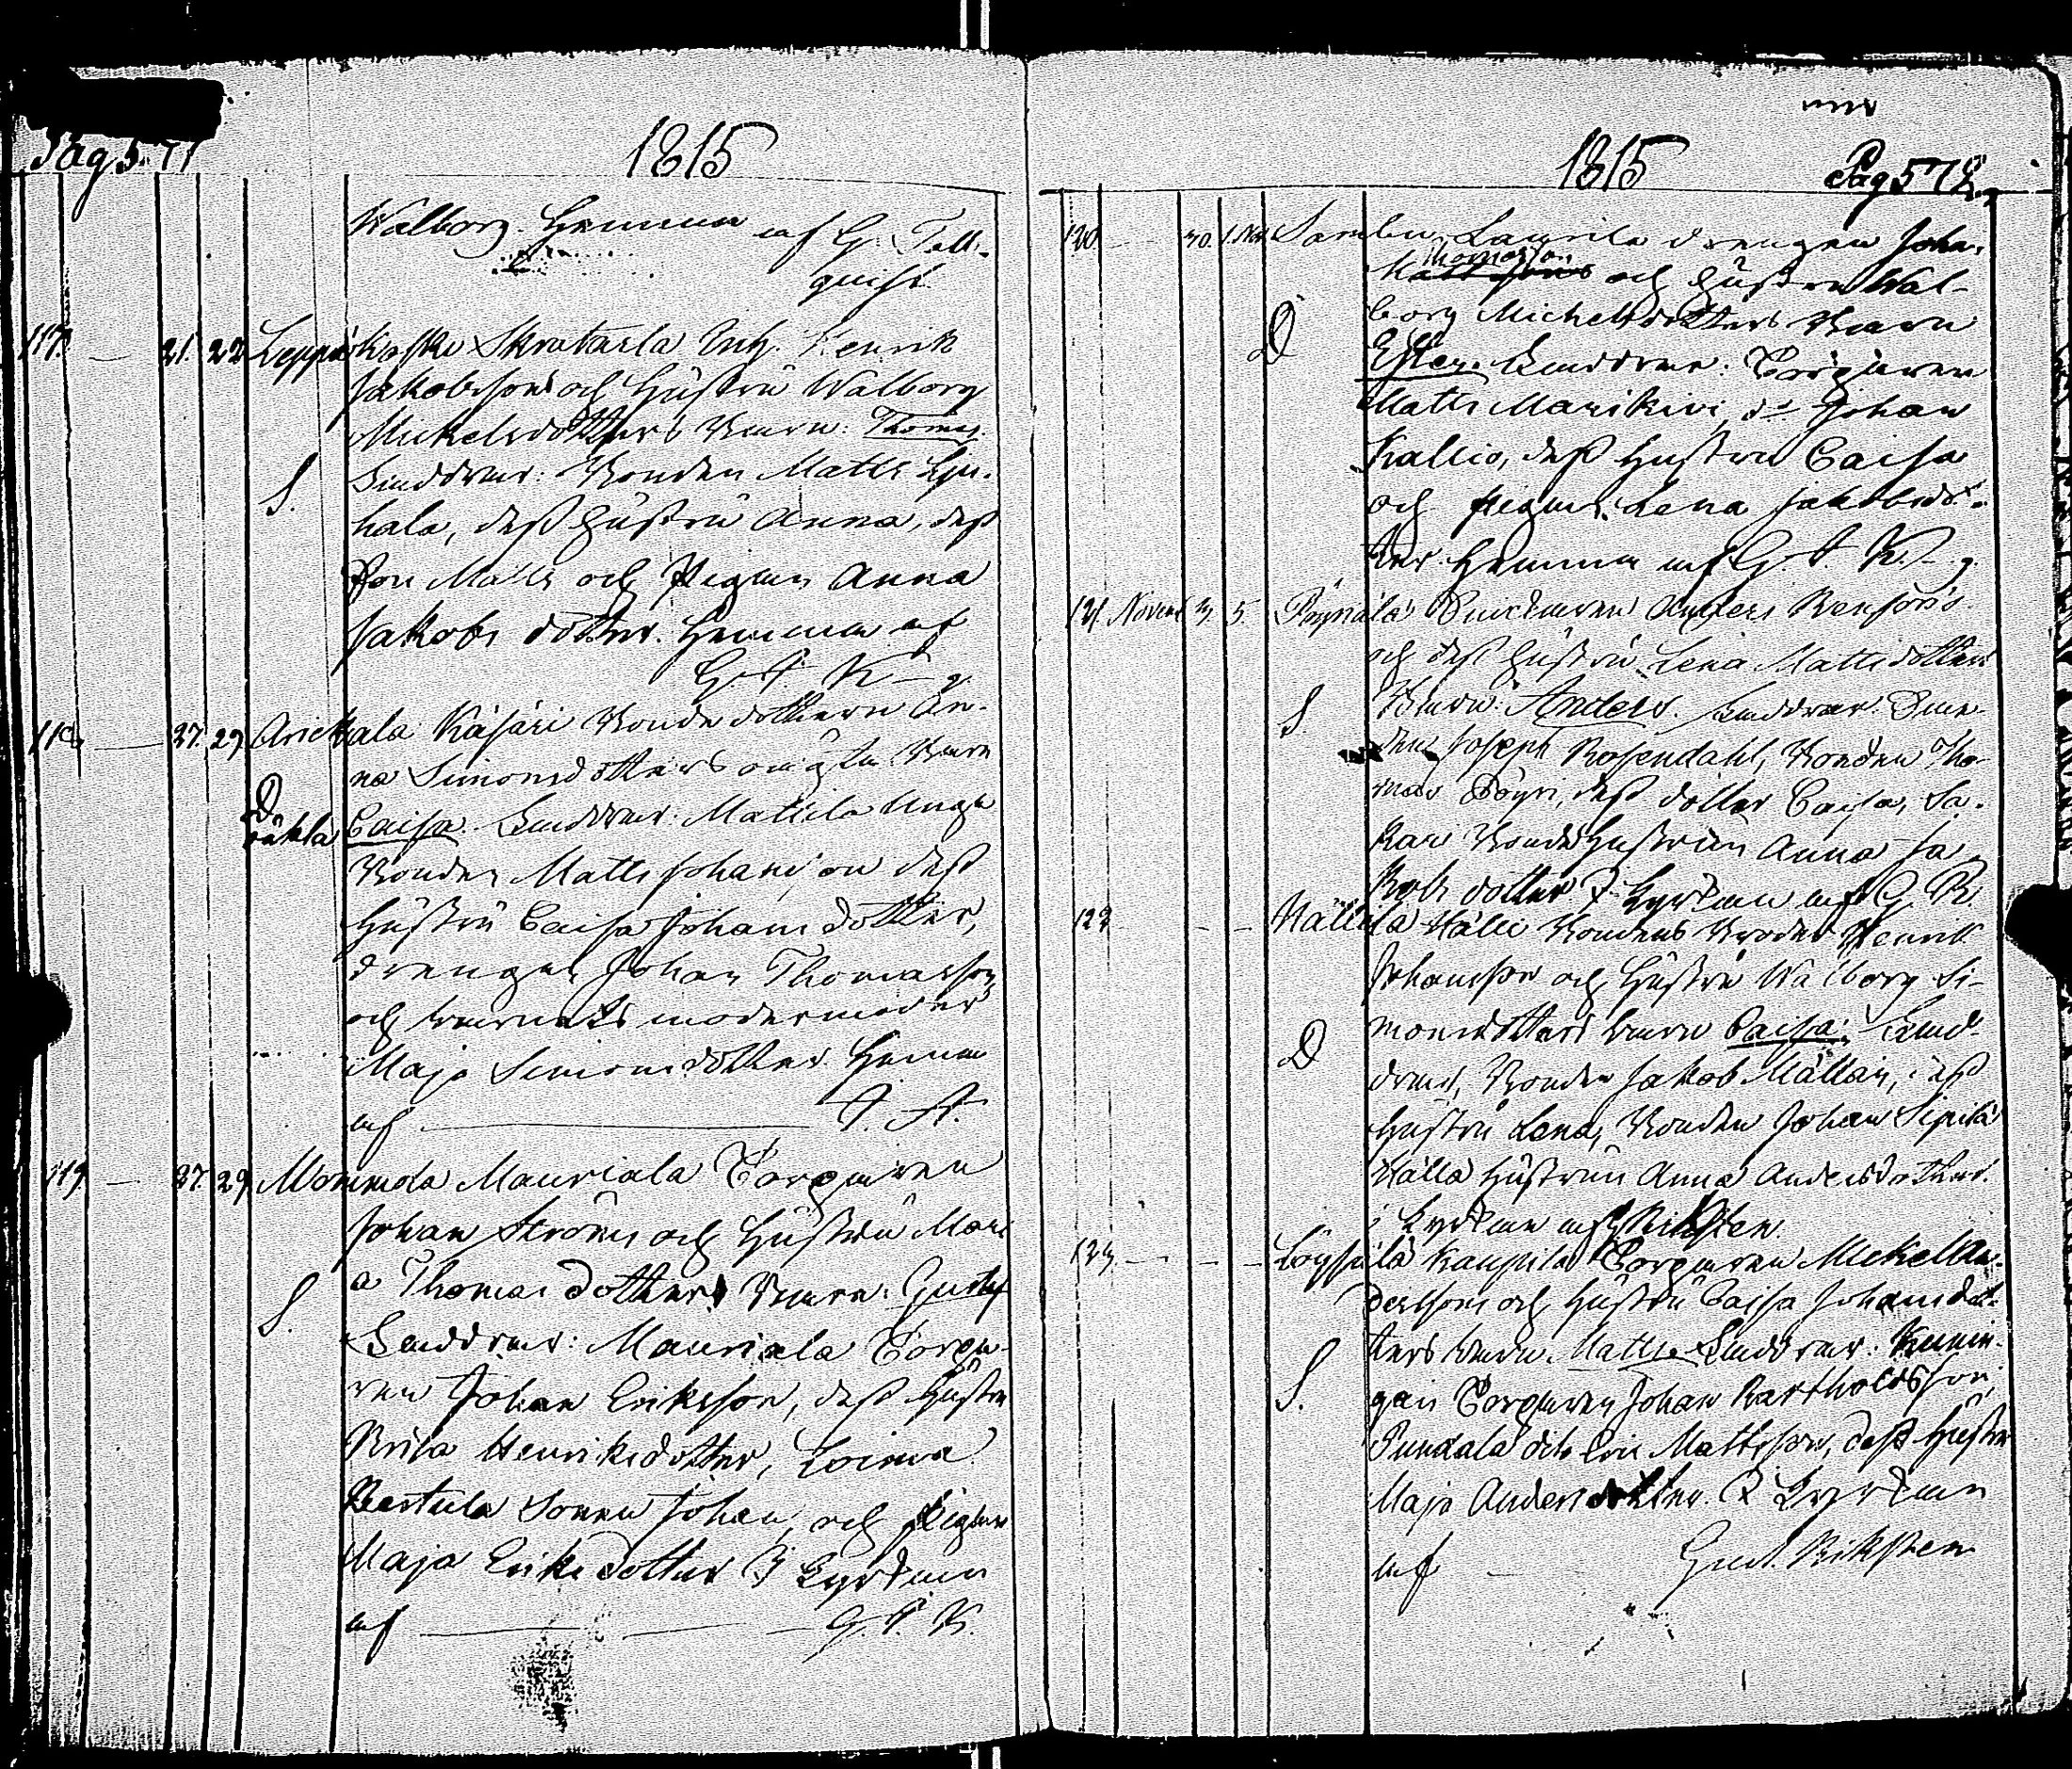 Pag 577
1815
Walborg. Hemma af G. Tall-
quist
117. — 21. 22 Leppäkoski Skratarla Inh. Henrik
Jakobsson och Hustru Walborg
Mickelsdotters Barn: Thomas.
S. Faddrar: Bonden Matts Lju-
hala, dess Hustru Anna, dess
Son Matts och Pigan Anna
Jakobs dotter. Hemma af
G. A. K—g.
118 — 27. 29 Arickala Käsäri Bonde dottern An-
na Simonsdotters oägta Barn
D
oäkta Caisa. Faddrar: Mattila unga
Bonden Matts Johansson dess
Hustru Caisa Johans dotter,
drengen Johan Thomasson
och barnets modermoder
Maja Simonsdotter. Hemma
af — A. A.
119. — 27. 29 Mommola Mauriala Torparen
Johan Ströms och Hustru Mari
a Thomas dotters Barn: Gustaf
S. Faddrar: Mauriala Torpa-
ren Johan Eriksson, dess Hustru
Brita Henriksdotter, Loima
Bertula Sonen Johan, och Pigan
Maja Eriksdotter I Kyrkan
af — G. A. K.
1815
Pag 578
120 — 30. 1. Nov. Sambu Laurila drengen Joha.
Thomasson
Mattssons och Hustru Wal-
borg Michelsdotters Barn
D Ester. Faddrar: Torparen
Matts Marikivi, do Johan
Kallio, dess Hustru Caisa
och Pigan Lena Jakobsdot-
ter. Hemma af G. A. K—g.
121. Novemb 3. 5. Anders Bensons
och dess Hustru Lena Mattsdotters
S. Barn: Anders. Faddrar:
Joseph Rosendahl, Bonden Tho-
mas Töyri, dess dotter Caisa, Sa-
kari Bonde Hustrun Anna Ja
kobs dotter. I Kyrkan af G. R.
122 — — — Hällilä Hälli Bondens Broder Henrik
Johansson och Hustru Walborg Si-
monsdotters barn Caisa: Fad-
D drar, Bonden Jakob Mällari, dess
Hustru Lena, Bonden Johan Sipilä
Hälla Hustrun Anna Andersdotter.
i Kyrkan af Riksten.
123. — — — Löysälä Kaupila Torparen Mickel An-
dersson och Hustru Caisa Johansdot-
ters barn Matts. Faddrar: Kunin-
S. gais Torparen Johan Bartholdsson,
Pundala dito Eric Mattsson, dess Hustru
Maja Andersdotter. I Kyrkan
af — Gust. Riksten